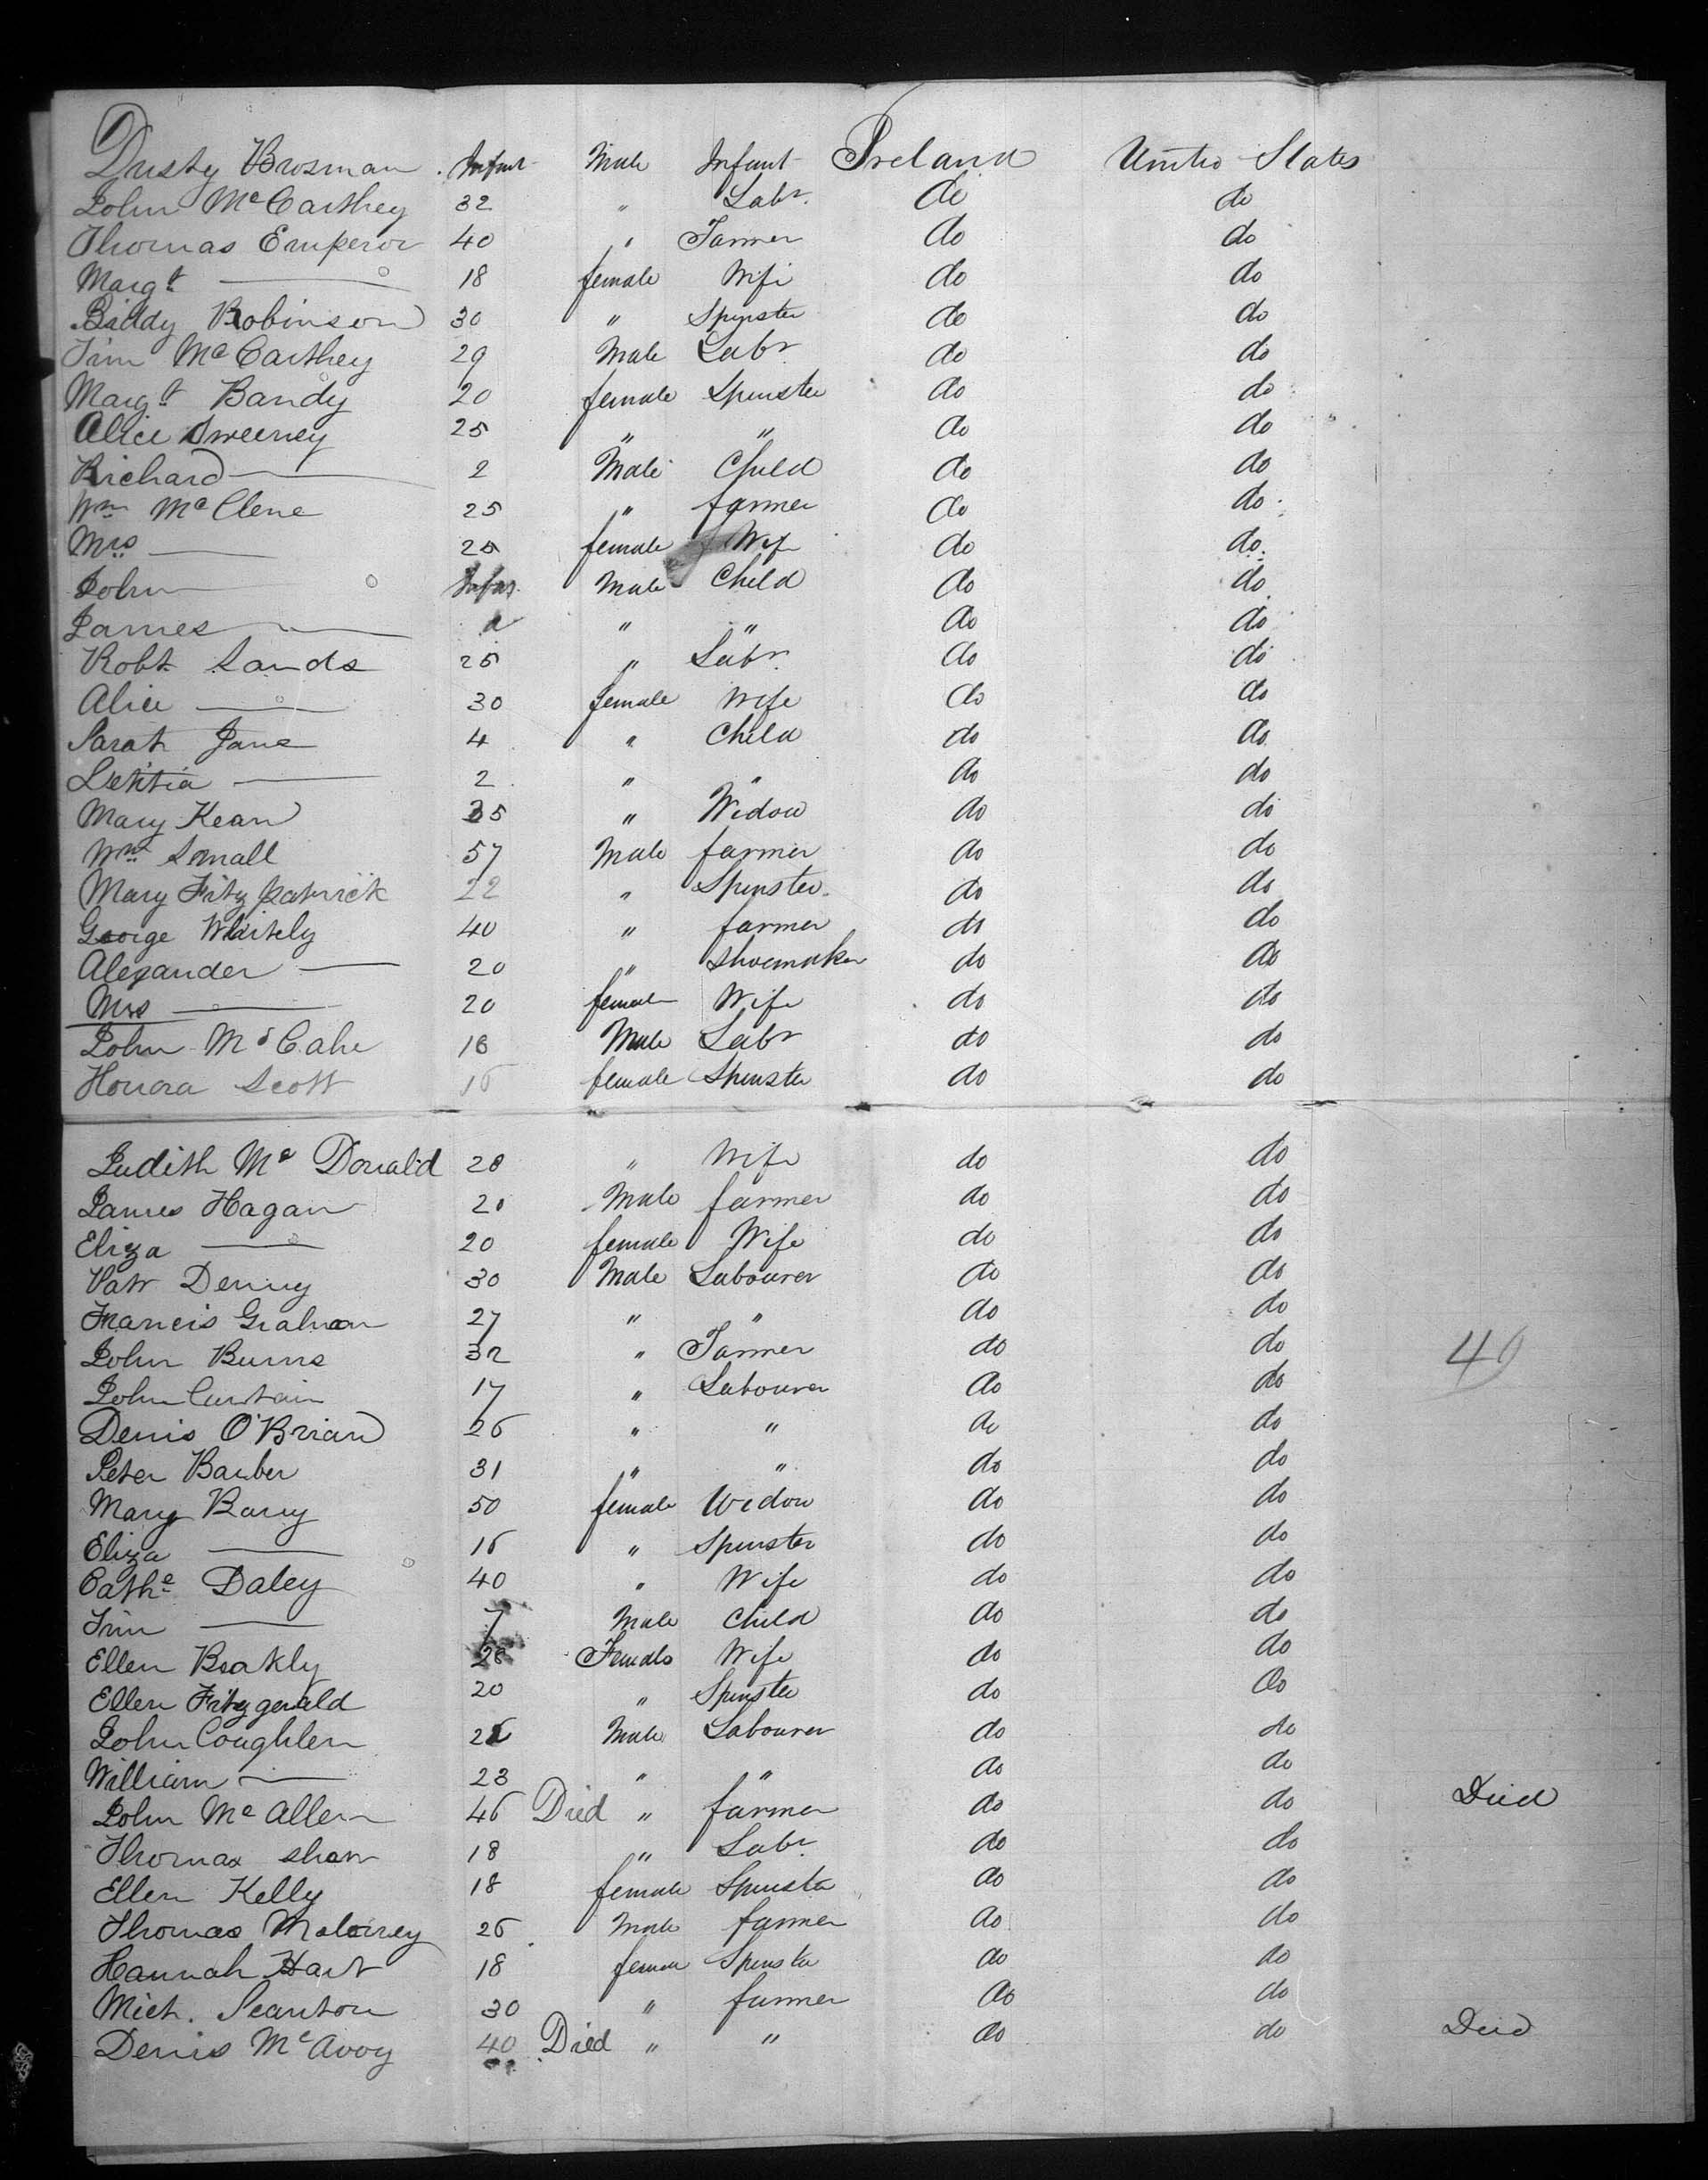 Dusty Brosman Infant Male Infant Ireland United States
John McCarthey 32 " Labr. do do
Thomas Emperor 40 " Farmer do do
Margt — 18 female Wife do do
Biddy Robinson 30 " Spinster do do
Tim McCarthey 29 Male Labr do do
Margt Bandy 20 female Spinster do do
Alice Sweeney 25 " " do do
Richard — 2 Male Child do do
Wm McClene 25 " farmer do do
Mrs — 25 female Wife do do
John — Infan. Male Child do do
James — " " do do
Robt Sands 25 " Labr. do do
Alice — 30 female Wife do do
Sarah Jane 4 " Child do do
Letitia — 2 " " do do
Mary Kean 35 " Widow do do
Wm Small 57 Male farmer do do
Mary Fitzpatrick 22 " Spinster do do
George Whitely 40 " farmer do do
Alexander — 20 " Shoemaker do do
Mrs — 20 female Wife do do
John McCahe 18 Male Labr do do
Honora Scott 16 female Spinster do do
Judith Mc Donald 28 " Wife do do
James Hagan 20 Male farmer do do
Eliza — 20 female Wife do do
Patr Denny 30 Male Labourer do do
Francis Graham 27 " " do do
John Burns 32 " Farmer do do 49
John Curtain 17 " Labourer do do
Denis O'Brian 26 " " do do
Peter Barber 31 " " do do
Mary Barry 50 female Widow do do
Eliza — 16 " Spinster do do
Cathe Daley 40 " Wife do do
Tim — 7 Male Child do do
Ellen Boakly 28 Female Wife do do
Ellen Fitzgerald 20 " Spinster do do
John Coughlen 26 Male Labourer do do
William — 23 " " do do
John McAllen 46 Died " farmer do do Died
Thomas Shaw 18 " Labr. do do
Ellen Kelly 18 female Spinster do do
Thomas 26 Male farmer do do
Hannah Hart 18 female Spinster do do
Mich. Scanton 30 " farmer do do
Denis McAvoy 40 Died " " do do Died